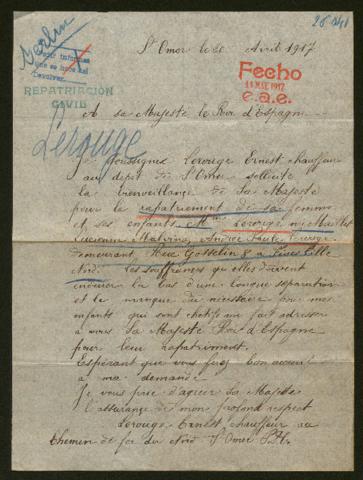 26 841
Berlin
St Omer le 20 Avril 1917
Pedir informes
que se hace del
Fecho
11 MAY. 1917
e.a.e.
REPATRIACIÓN
CIVIL
A sa Majesté le Roi d'Espagne
Lerouge
Je soussigné Lerouge Ernest chauffeur
au dépôt de St Omer sollicite
la bienveillance de Sa Majesté
pour le rapatriement de sa femme
et ses enfants Mme Lerouge née
Lucienne Malvina, Andrée Lerouge
demeurant, Rue Gosselin 8 a Lille
Nord. Les souffrances qu'elles doivent
endurer la bas d'une longue séparation
et le manque du nécessaire pour mes
enfants qui sont chétifs me fait adresser
a vous Sa Majesté Roi d'Espagne
pour leur rapatriment.
Espérant que vous ferez bon accueil
a ma demande
Je vous prie d'agréer Sa Majesté
l'assurance de mon profond respect
Lerouge Ernest, chauffeur au
Chemin de fer du Nord St Omer P.d.C.